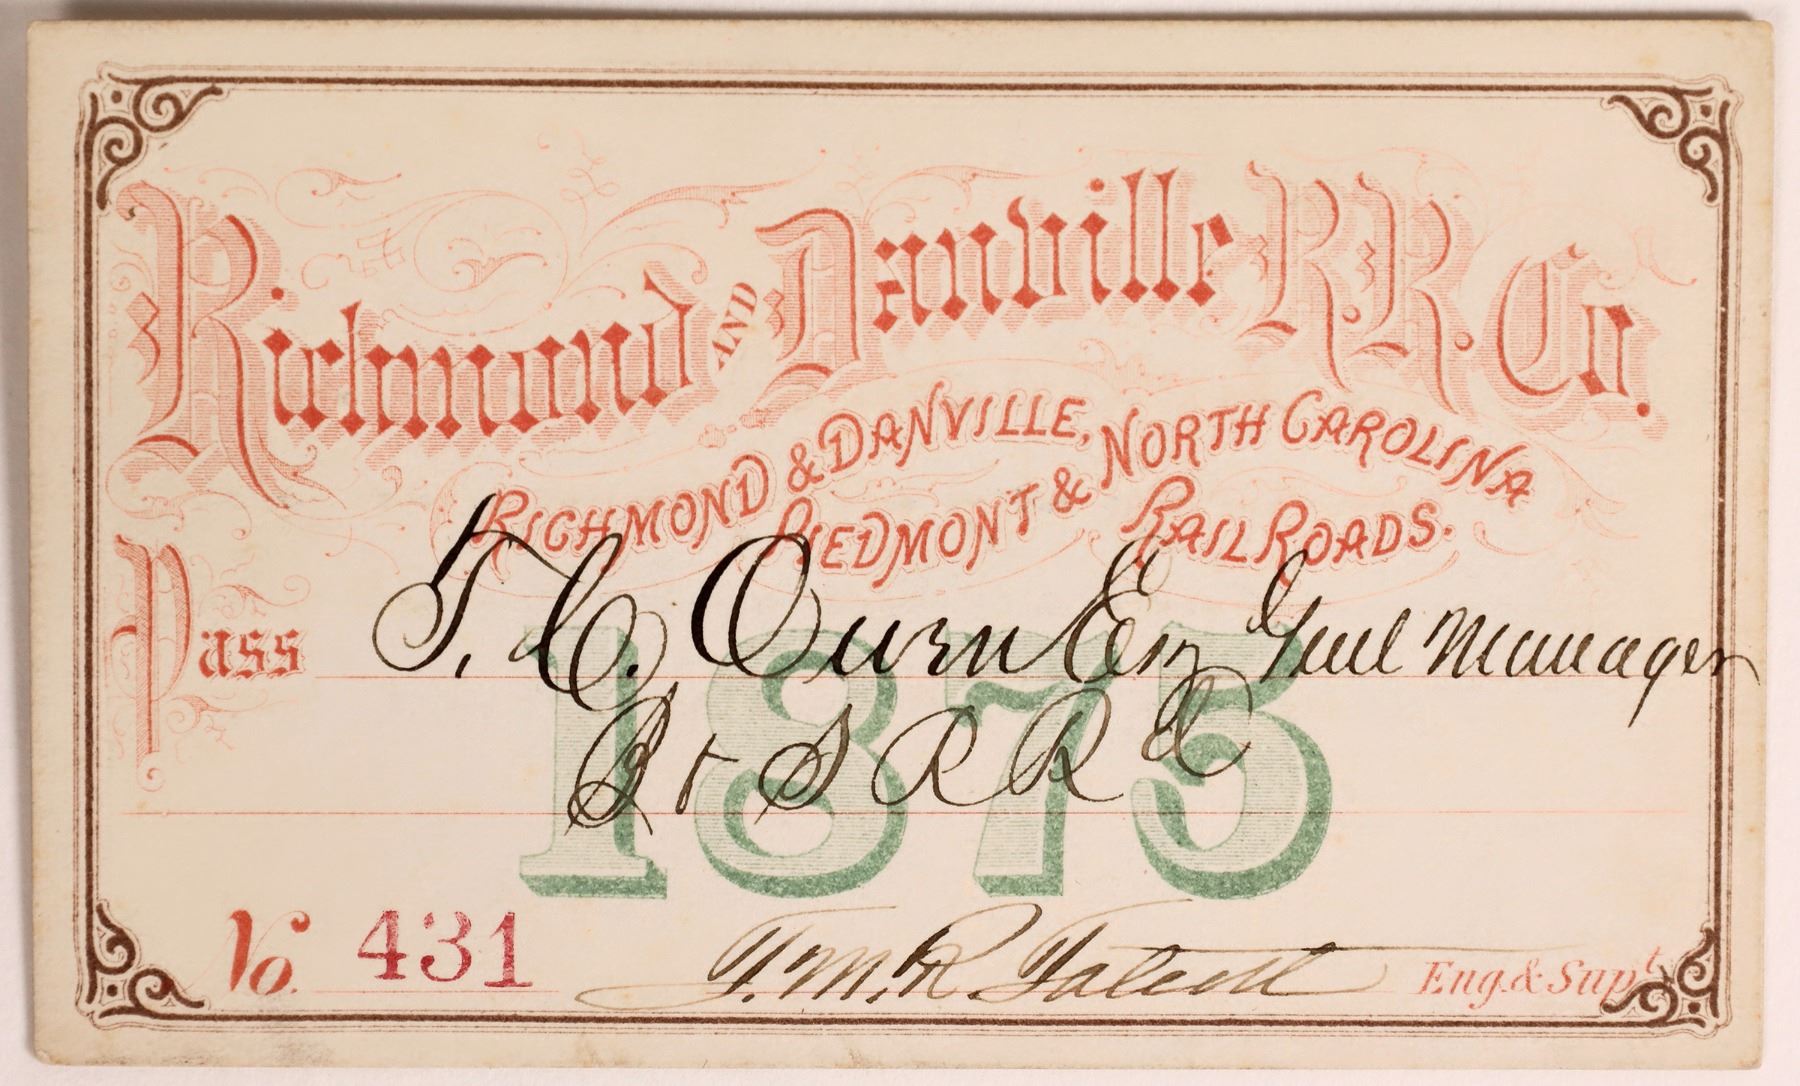 Richmond AND Danville R.R. Co.
RICHMOND & DANVILLE, NORTH CAROLINA
PIEDMONT & RAILROADS.
Pass J. C. Owen Genl Manager
1875
S R R
No. 431 T. M. R. Talcott Eng. & Supt